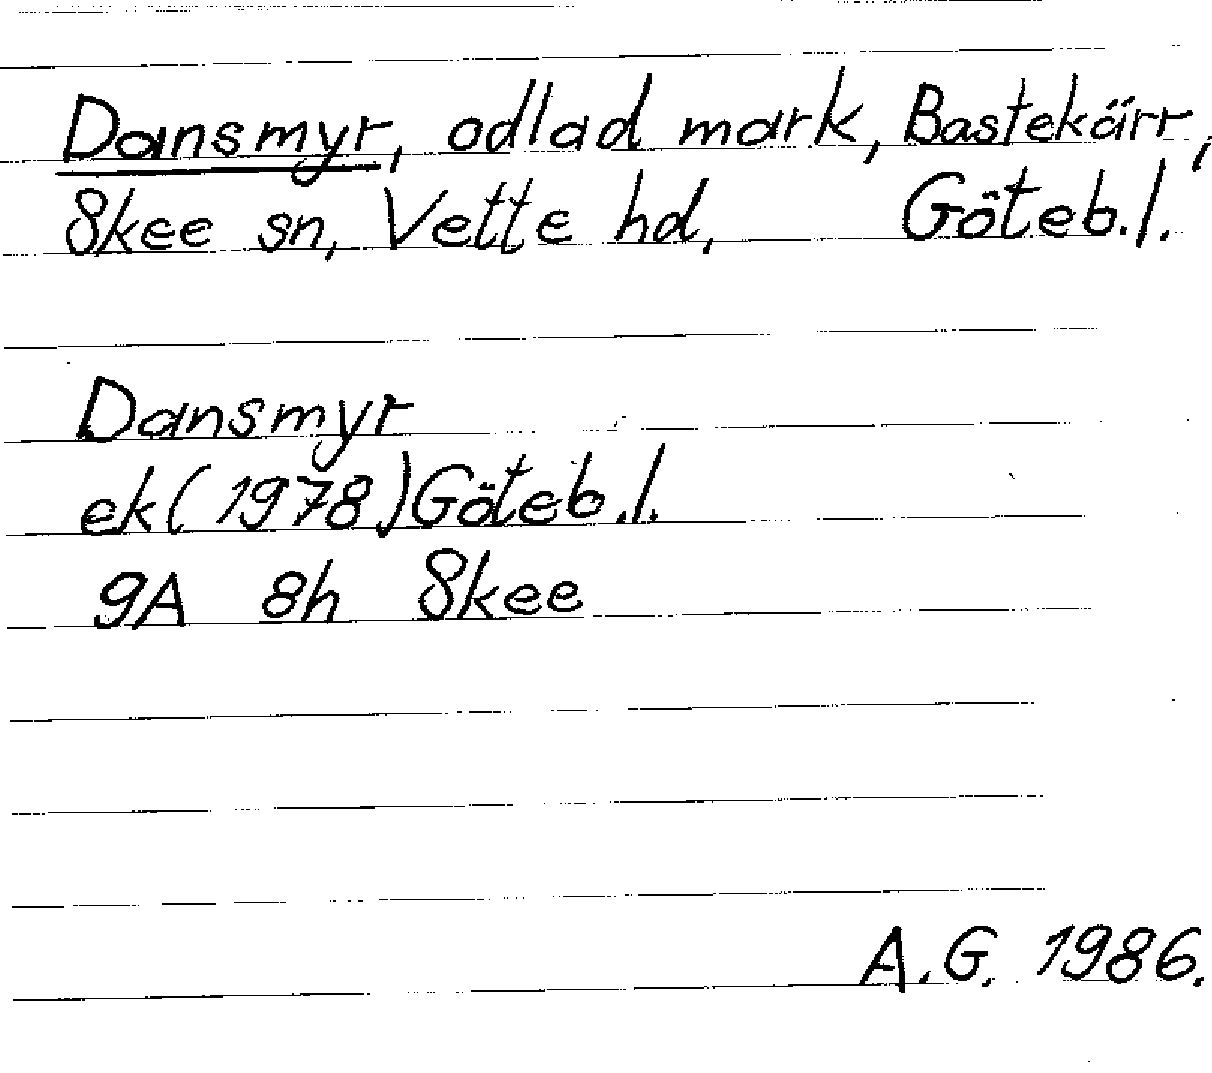 Dansmyr, odlad mark, Bastekärr,
Skee sn, Vette hd, Göteb.l.
Dansmyr
ek (1978) Göteb.l.
9A 8h Skee
A.G. 1986.